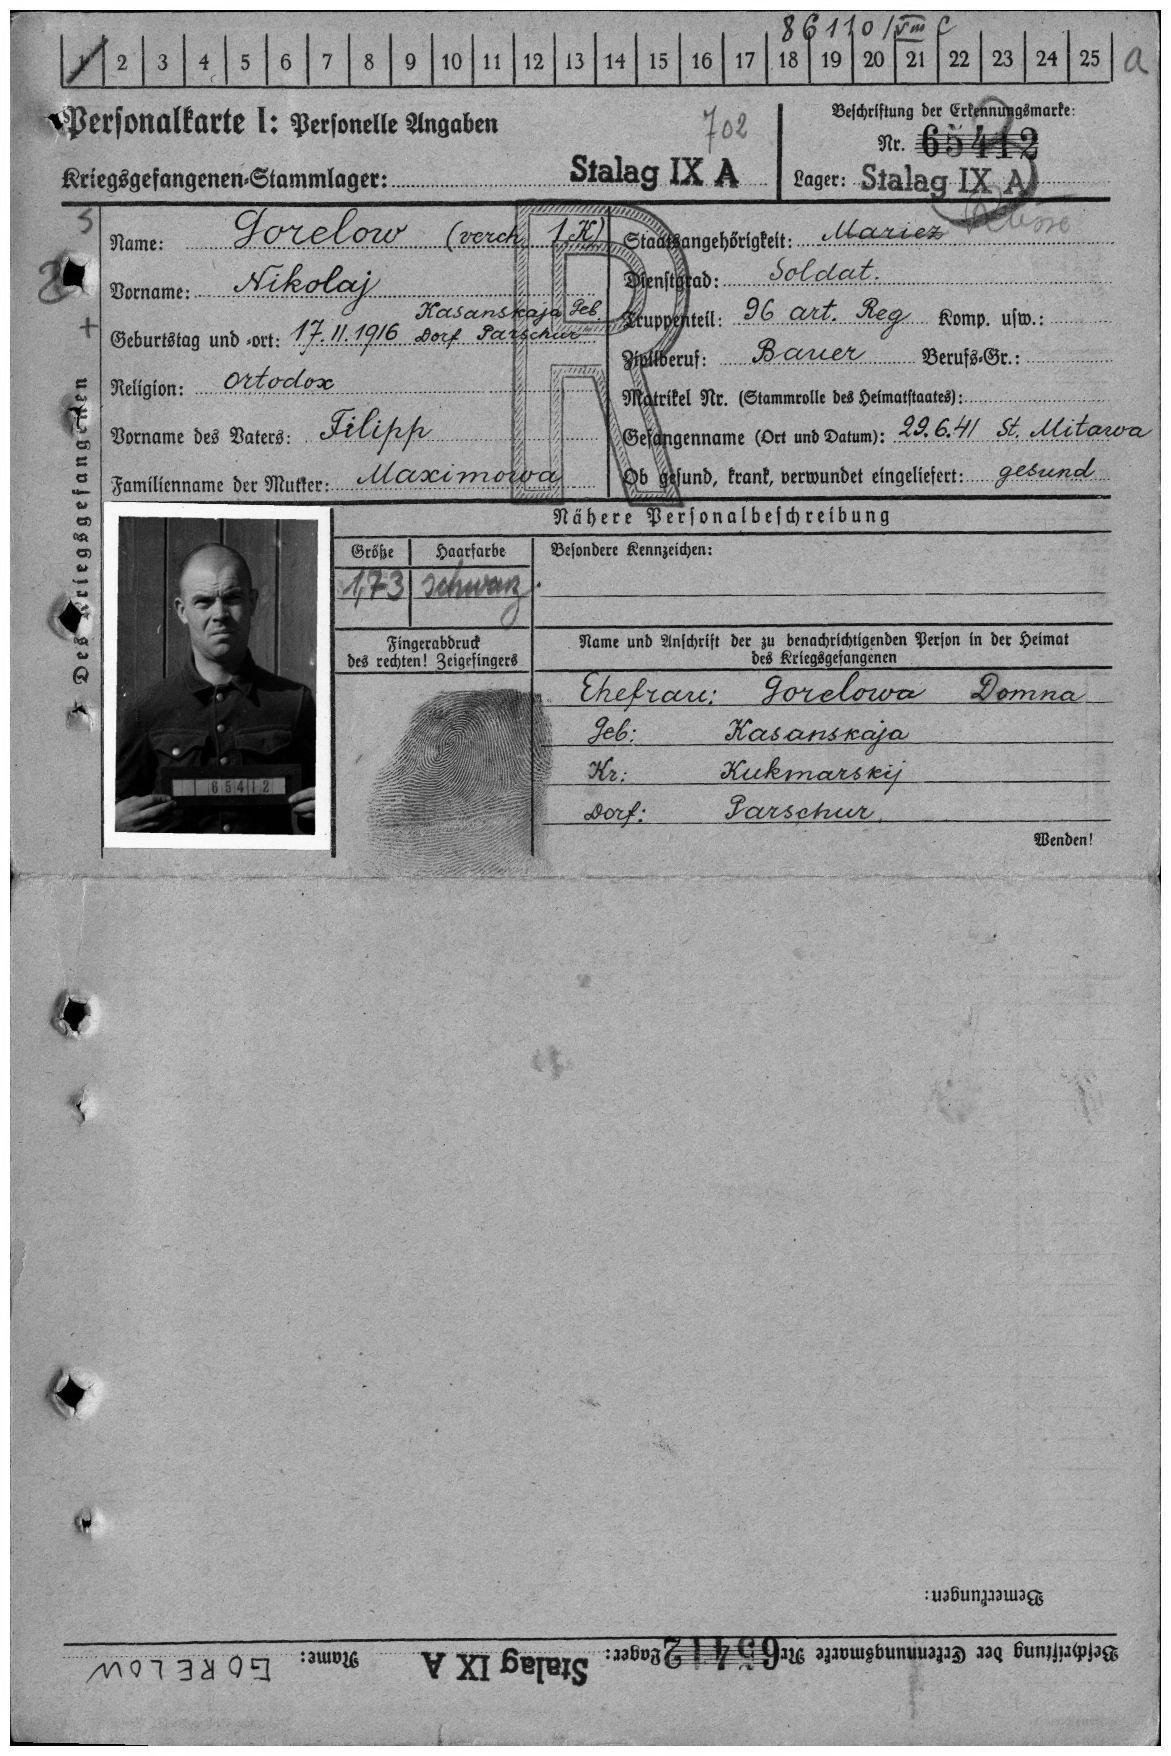 86110/VIII C
1 2 3 4 5 6 7 8 9 10 11 12 13 14 15 16 17 18 19 20 21 22 23 24 25 a
Personalkarte I: Personelle Angaben
702
Kriegsgefangenen-Stammlager: Stalag IX A
Beschriftung der Erkennungsmarke:
Nr. 65412
Lager: Stalag IX A
Russe
Des Kriegsgefangenen
Name: Gorelow (verch. 1 K)
Vorname: Nikolaj
Geburtstag und -ort: 17.11.1916 Kasanskaja Geb. Dorf Parschur
Religion: ortodox
Vorname des Vaters: Filipp
Familienname der Mutter: Maximowa
R
Staatsangehörigkeit: Mariez
Dienstgrad: Soldat.
Truppenteil: 96 art. Reg Komp. usw.:
Zivilberuf: Bauer Berufs-Gr.:
Matrikel Nr. (Stammrolle des Heimatstaates):
Gefangenname (Ort und Datum): 29.6.41 St. Mitawa
Ob gesund, krank, verwundet eingeliefert: gesund
65412
Nähere Personalbeschreibung
Größe Haarfarbe Besondere Kennzeichen:
1,73 schwarz
Fingerabdruck
des rechten! Zeigefingers
Name und Anschrift der zu benachrichtigenden Person in der Heimat
des Kriegsgefangenen
Ehefrau: Gorelowa Domna
Geb: Kasanskaja
Kr: Kukmarskij
Dorf: Parschur
Wenden!
Bemerkungen:
Beschriftung der Erkennungsmarke Nr. 65412 Lager: Stalag IX A Name: GORELOW